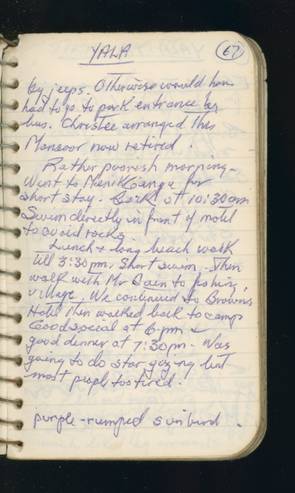 YALA
67
by jeeps. Otherwise would have
had to go to park entrance by
bus. Christee arranged this
Mansoor now retired.
Rather poorish morning -
Went to Manik Ganga for
short stay. Back at 10:30am
Swim directly in front of motel
to avoid rocks.
Lunch + long beach walk
till 3:30pm. Short swim. Then
walk with Mr to fishing
village. We continued to Browns
Hotel then walked back to camp
Good special at 6 pm &
good dinner at 7:30pm. Was
going to do star gazing but
most people too tired.
purple-rumped sunbird.